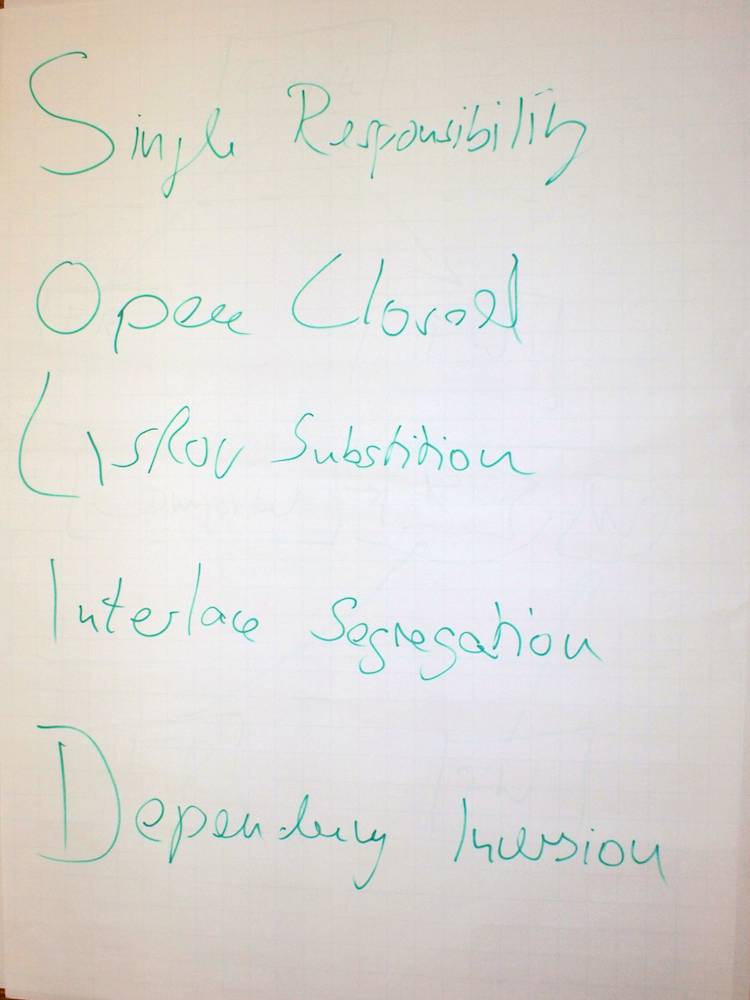 Single Responsibility
Open Closed
Liskov Substition
Interface Segregation
Dependency Inversion